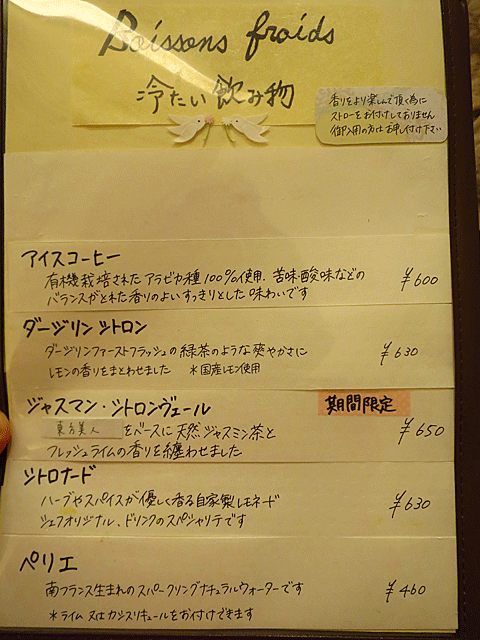 Boissons froids
冷たい飲み物
香りをより楽しんで頂く為に
ストローをお付けしておりません
御入用の方はお申し付け下さい
アイスコーヒー
有機栽培された アラビカ種100%使用、苦味・酸味などの
バランスがとれた香りのよいすっきりとした味わいです
¥600
ダージリン シトロン
ダージリンファーストフラッシュの緑茶のような爽やかさに
レモンの香りをまとわせました ＊国産レモン使用
¥630
ジャスマン・シトロンヴェール
期間限定
東方美人 をベースに天然ジャスミン茶と
フレッシュライムの香りを纏わせました
¥650
シトロナード
ハーブやスパイスが優しく香る自家製レモネード
シェフオリジナル、ドリンクのスペシャリテです
¥630
ペリエ
南フランス生まれのスパークリングナチュラルウォーターです
¥460
＊ライム 又は カシスリキュールをお付けできます